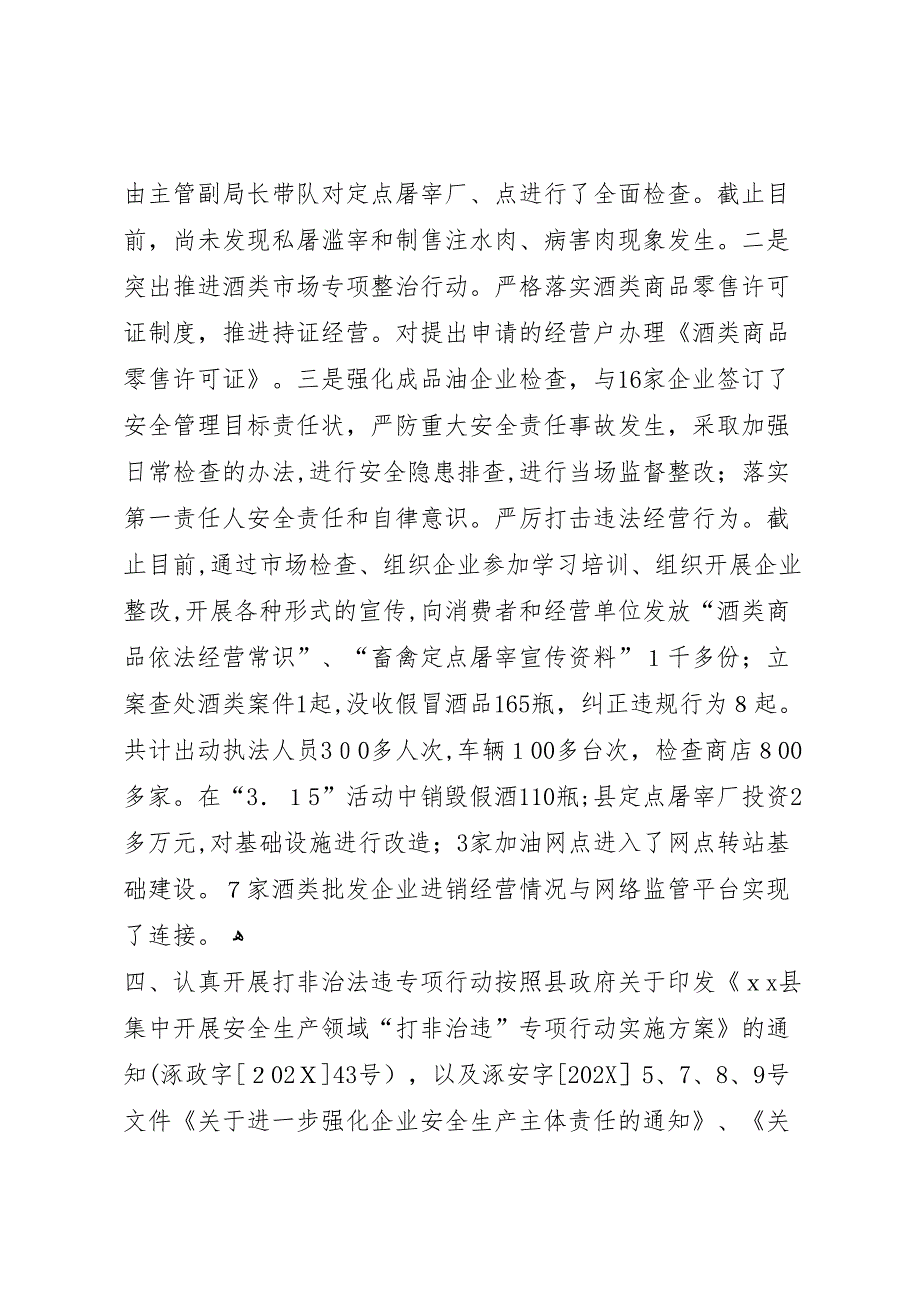 由主管副局长带队对定点屠宰厂、点进行了全面检查。截止目
前，尚未发现私屠滥宰和制售注水肉、病害肉现象发生。二是
突出推进酒类市场专项整治行动。严格落实酒类商品零售许可
证制度，推进持证经营。对提出申请的经营户办理《酒类商品
零售许可证》。三是强化成品油企业检查，与16家企业签订了
安全管理目标责任状，严防重大安全责任事故发生，采取加强
日常检查的办法,进行安全隐患排查,进行当场监督整改；落实
第一责任人安全责任和自律意识。严厉打击违法经营行为。截
止目前,通过市场检查、组织企业参加学习培训、组织开展企业
整改,开展各种形式的宣传,向消费者和经营单位发放“酒类商
品依法经营常识”、“畜禽定点屠宰宣传资料”１千多份；立
案查处酒类案件1起,没收假冒酒品165瓶，纠正违规行为８起。
共计出动执法人员3００多人次,车辆１00多台次，检查商店８00
多家。在“3．１5”活动中销毁假酒110瓶;县定点屠宰厂投资2
多万元,对基础设施进行改造；3家加油网点进入了网点转站基
础建设。７家酒类批发企业进销经营情况与网络监管平台实现
了连接。 ﻬ
四、认真开展打非治法违专项行动按照县政府关于印发《ｘx县
集中开展安全生产领域“打非治违”专项行动实施方案》的通
知(涿政字[２02Ｘ]43号），以及涿安字[202X］5、7、8、9号
文件《关于进一步强化企业安全生产主体责任的通知》、《关